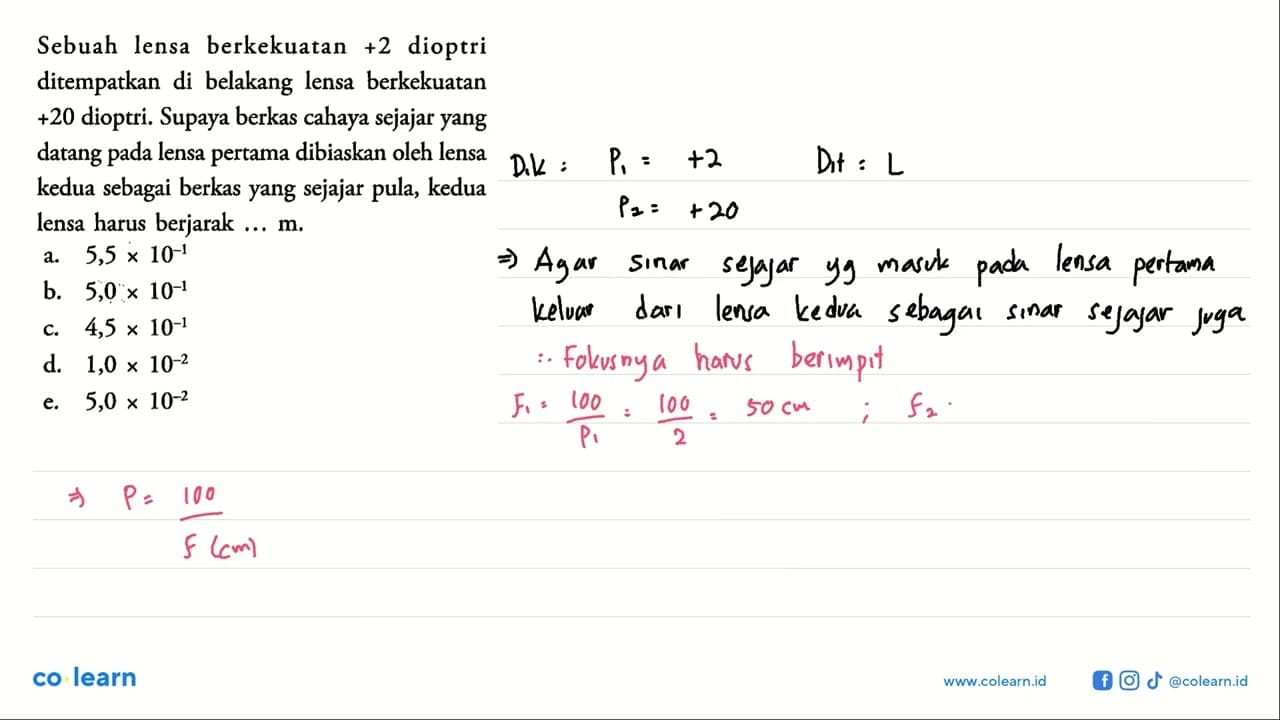 Sebuah lensa berkekuatan +2 dioptri
ditempatkan di belakang lensa berkekuatan
+20 dioptri. Supaya berkas cahaya sejajar yang
datang pada lensa pertama dibiaskan oleh lensa
kedua sebagai berkas yang sejajar pula, kedua
lensa harus berjarak ... m.
a. 5,5 × 10⁻¹
b. 5,0 × 10⁻¹
c. 4,5 × 10⁻¹
d. 1,0 × 10⁻²
e. 5,0 × 10⁻²
Dik : P₁ = +2 Dit : L
P₂ = +20
⇒ Agar sinar sejajar yg masuk pada lensa pertama
keluar dari lensa kedua sebagai sinar sejajar juga
∴ Fokusnya harus berimpit
F₁ = 100/P₁ = 100/2 = 50 cm ; f₂
⇒ P = 100/f (cm)
co learn
www.colearn.id
@colearn.id